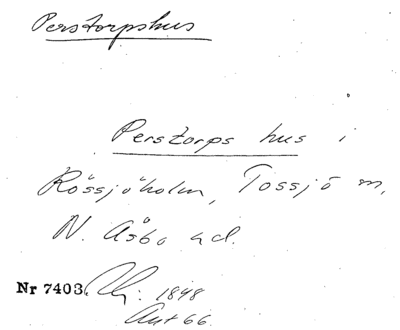 Perstorpshus
Perstorps hus i
Rössjöholm, Tossjö m,
N. Åsbo hd.
Nr 7403. : 1848
Ant 66